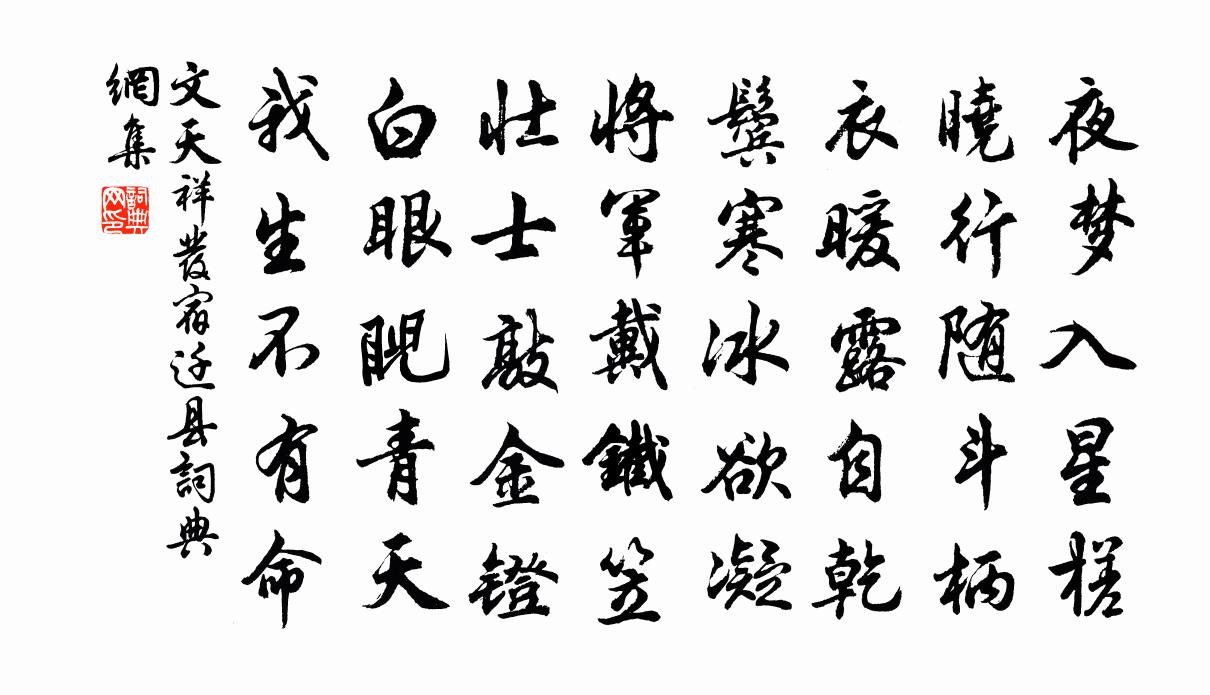 夜梦入星槎
曉行随斗柄
衣暖露自乾
鬓寒冰欲凝
將軍戴鐵笠
壮士敲金鐙
白眼睨青天
我生不有命
文天祥發宿迁县詞典
網集
詞典
网印